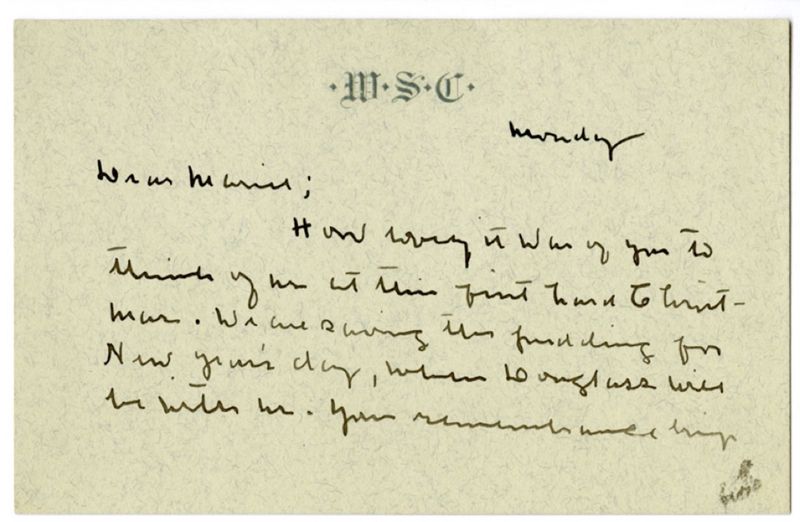 ·W·S·C·
Monday
Dear Marie;
How lovely it was of you to
think of us at this first hard Christ-
mas. We are saving the pudding for
New year's day, when Douglass will
be with us. Your remembrance